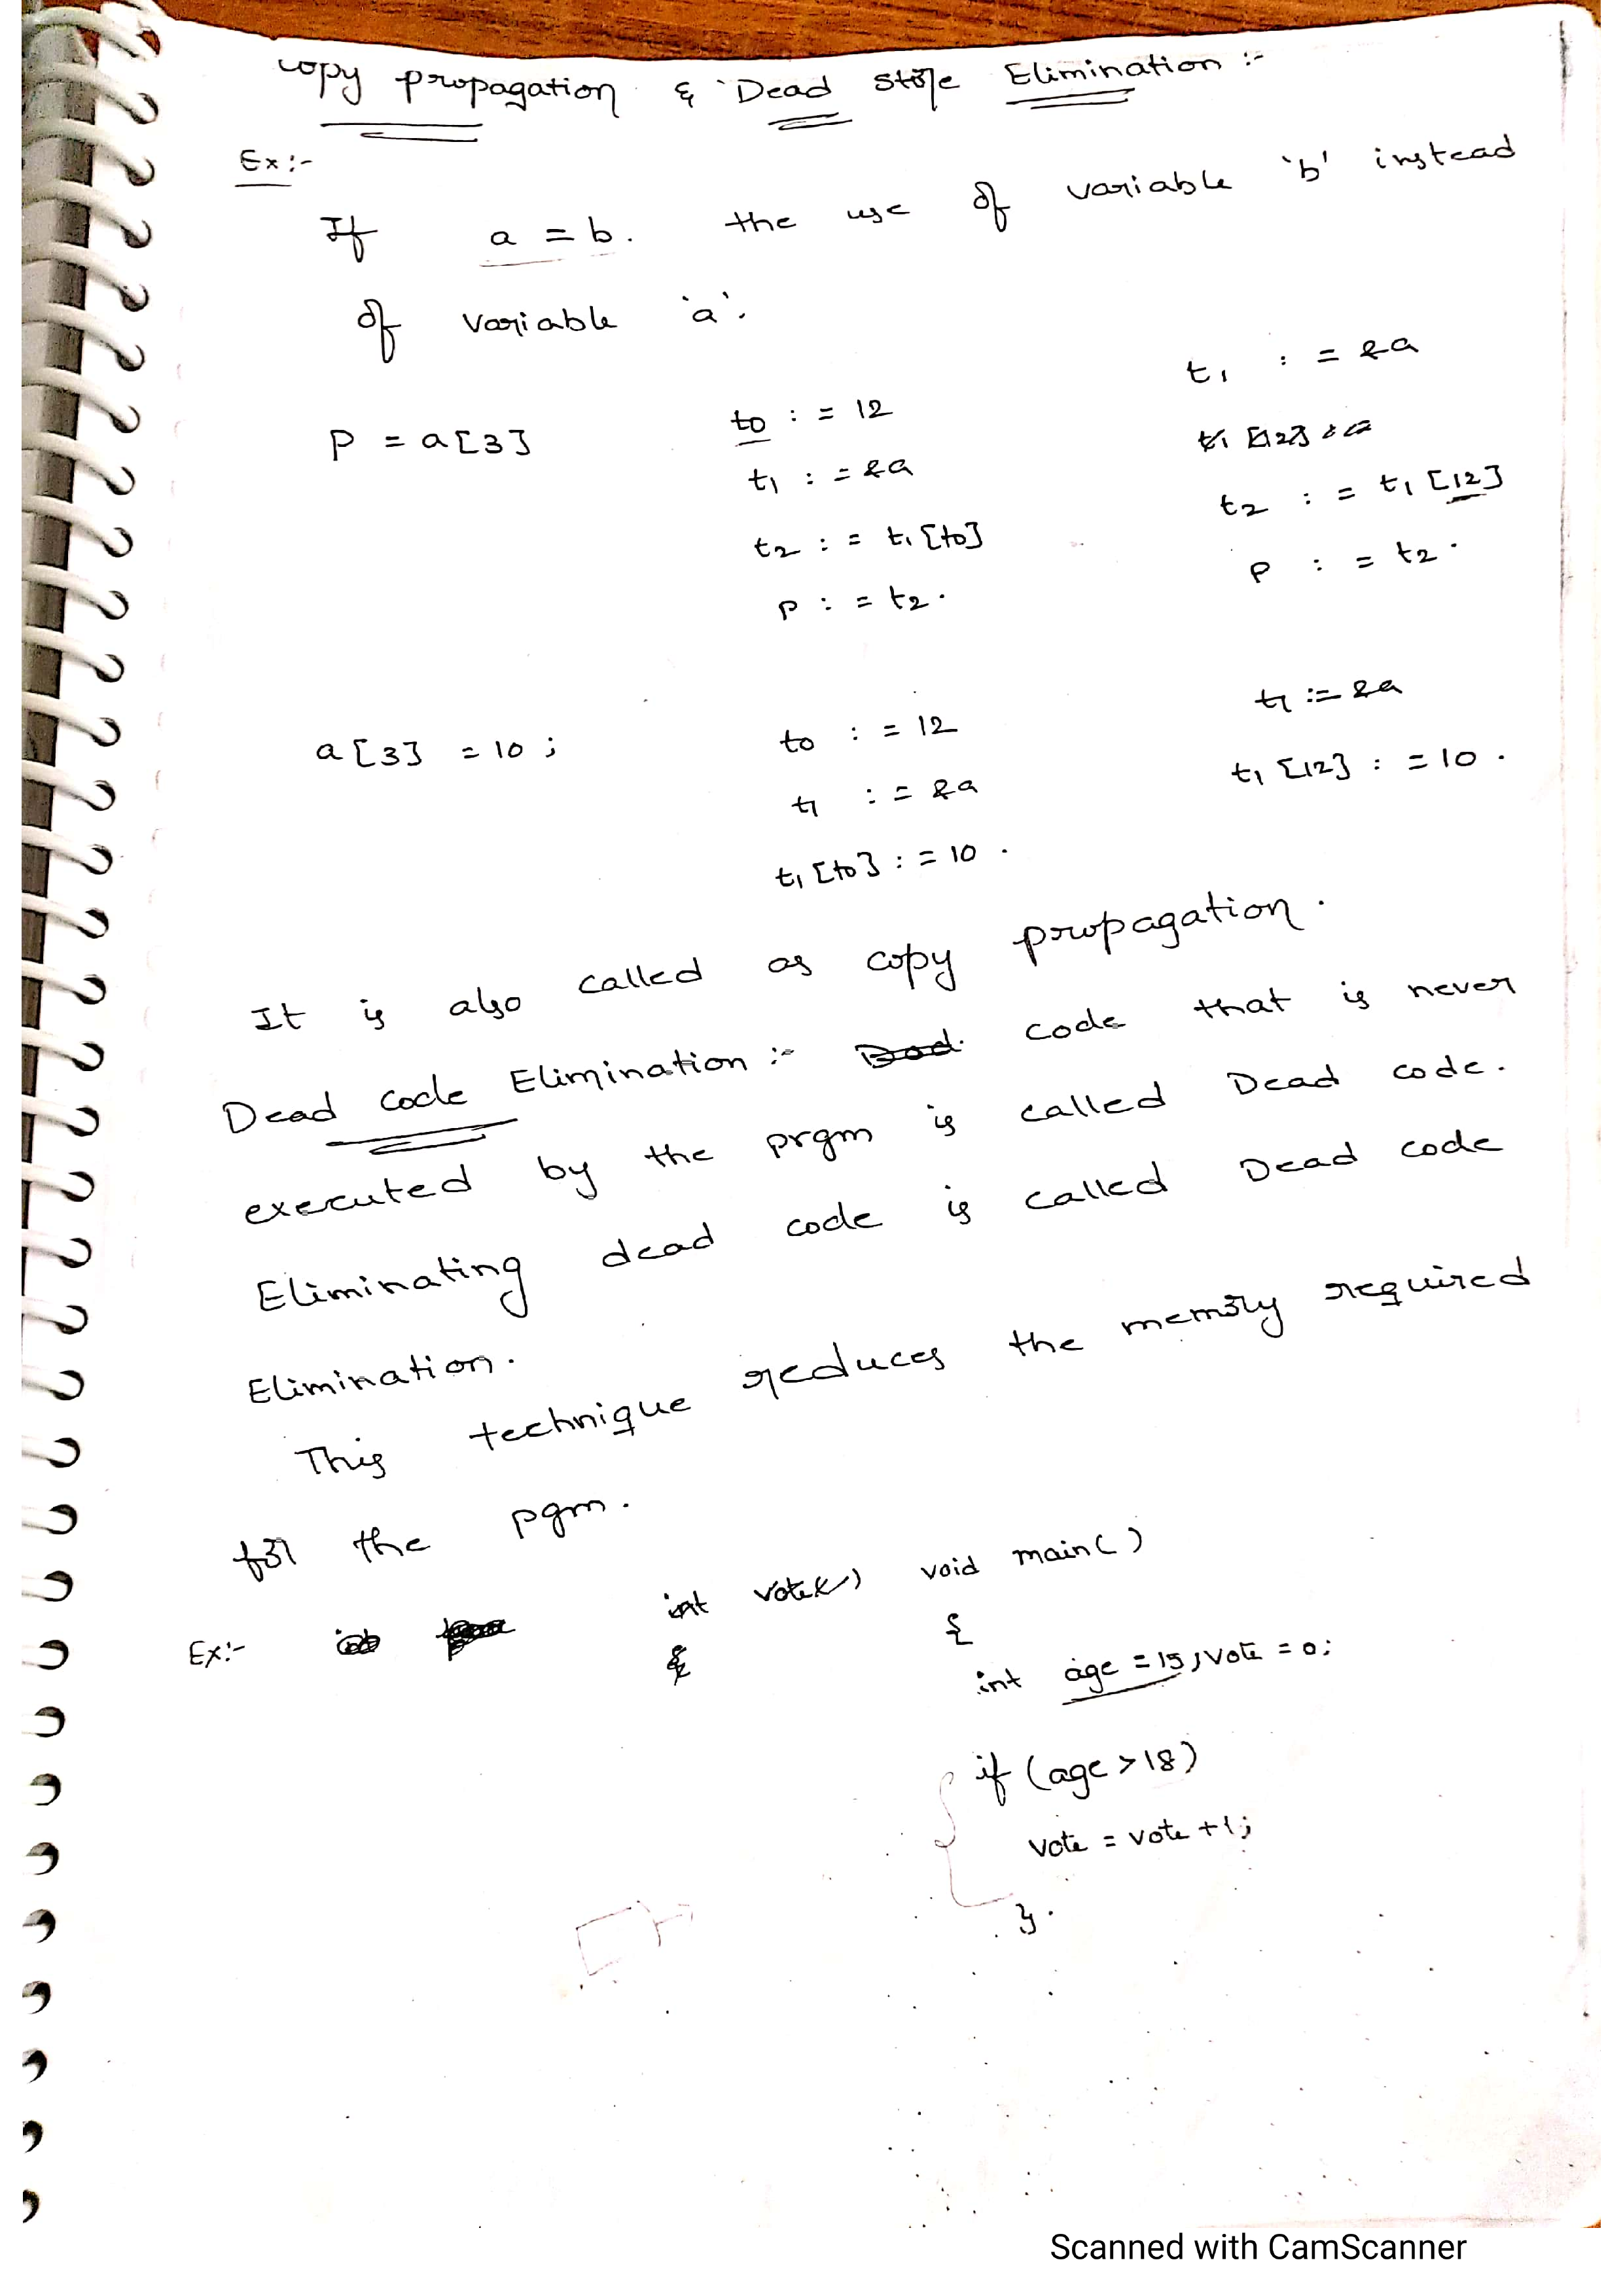 copy propagation & Dead store Elimination :-
Ex:-
If a = b. the use of variable 'b' instead
of variable 'a'.
P = a[3]
to := 12
t1 := &a
t2 := t1[to]
p := t2.
t1 := &a
t2 := t1[12]
P := t2.
a[3] = 10;
to := 12
t1 := &a
t1[to] := 10.
t1 := &a
t1[12] := 10.
It is also called as copy propagation.
Dead code Elimination :- code that is never
executed by the prgm is called Dead code.
Eliminating dead code is called Dead code
Elimination.
This technique reduces the memory required
for the pgm.
Ex:- int vote() void main()
{ {
int age = 15, vote = 0;
if (age > 18)
vote = vote + 1;
}.
Scanned with CamScanner